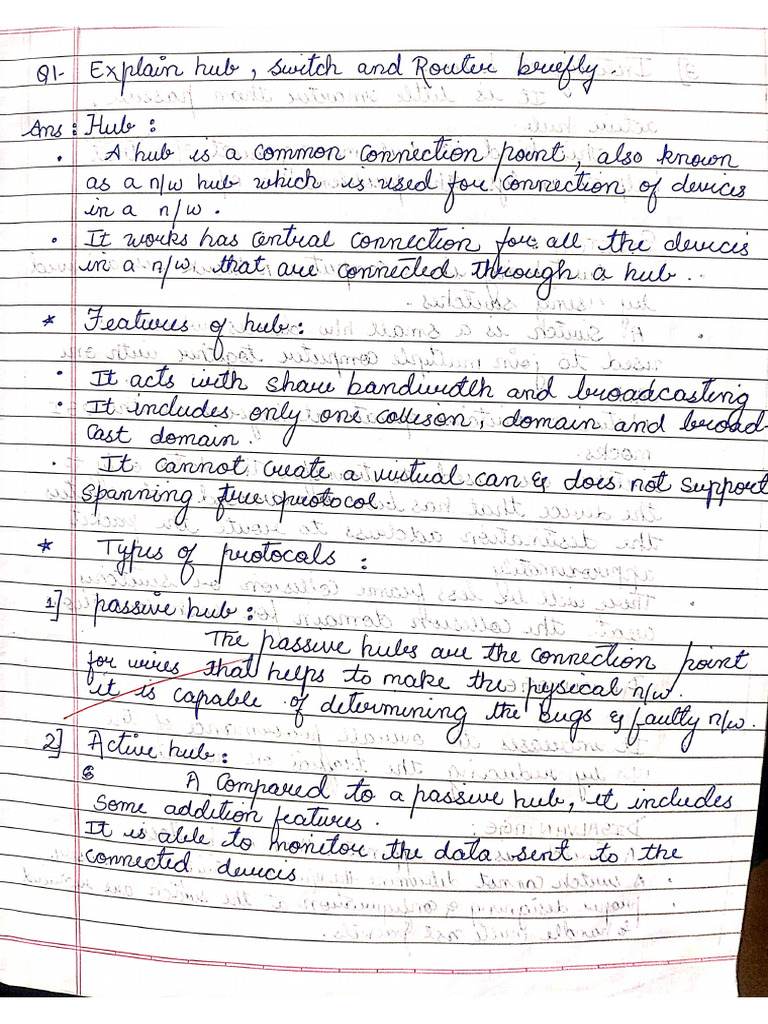 Q1- Explain hub, switch and Router briefly.
Ans: Hub:
• A hub is a common connection point, also known
as a n/w hub which is used for connection of devices
in a n/w.
• It works has central connection for all the devices
in a n/w that are connected through a hub.
* Features of hub:
• It acts with share bandwidth and broadcasting
• It includes only one collison, domain and broad-
cast domain.
• It cannot create a virtual can & does not support
spanning tree protocol.
* Types of protocals :
1] passive hub:
The passive hubes are the connection point
for wires that helps to make the pysical n/w.
it is capable of determining the Bugs & faulty n/w.
2] Active hub:
A compared to a passive hub, it includes
some addition features.
It is able to monitor the data sent to the
connected devices